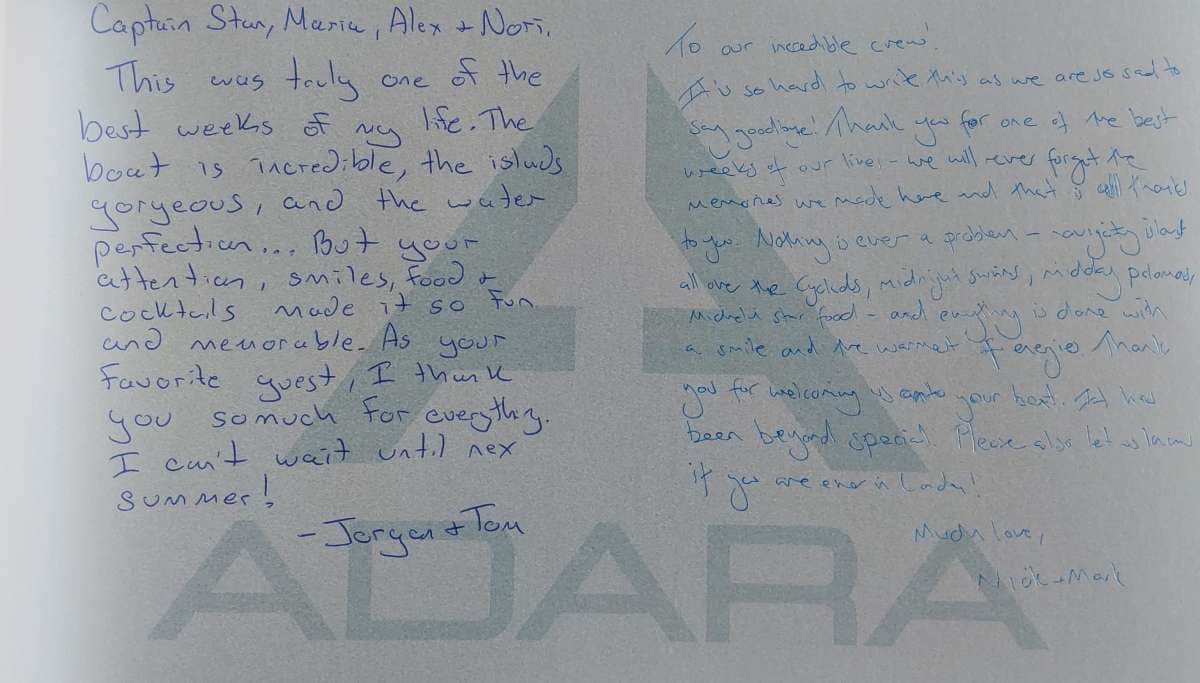 Captain Stan, Maria, Alex + Nori.
This was truly one of the
best weeks of my life. The
boat is incredible, the islads
gorgeous, and the water
perfection... But your
attention, smiles, food +
cocktails made it so fun
and memorable. As your
favorite guest, I thank
you so much for everything.
I can't wait until nex
summer!
- Jorgen + Tom
To our incredible crew!
It's so hard to write this as we are so sad to
say goodbye! Thank you for one of the best
weeks of our lives - we will never forget the
memories we made here and that is all thanks
to you. Nothing is ever a problem - navigating
all over the Cyclads, midnight swims, midday palomas,
Michelin star food - and everything is done with
a smile and the warmest of energies. Thank
you for welcoming us onto your boat. It has
been beyond special. Please also let us know
if you are ever in London!
Much love,
Nick + Mark
ADARA